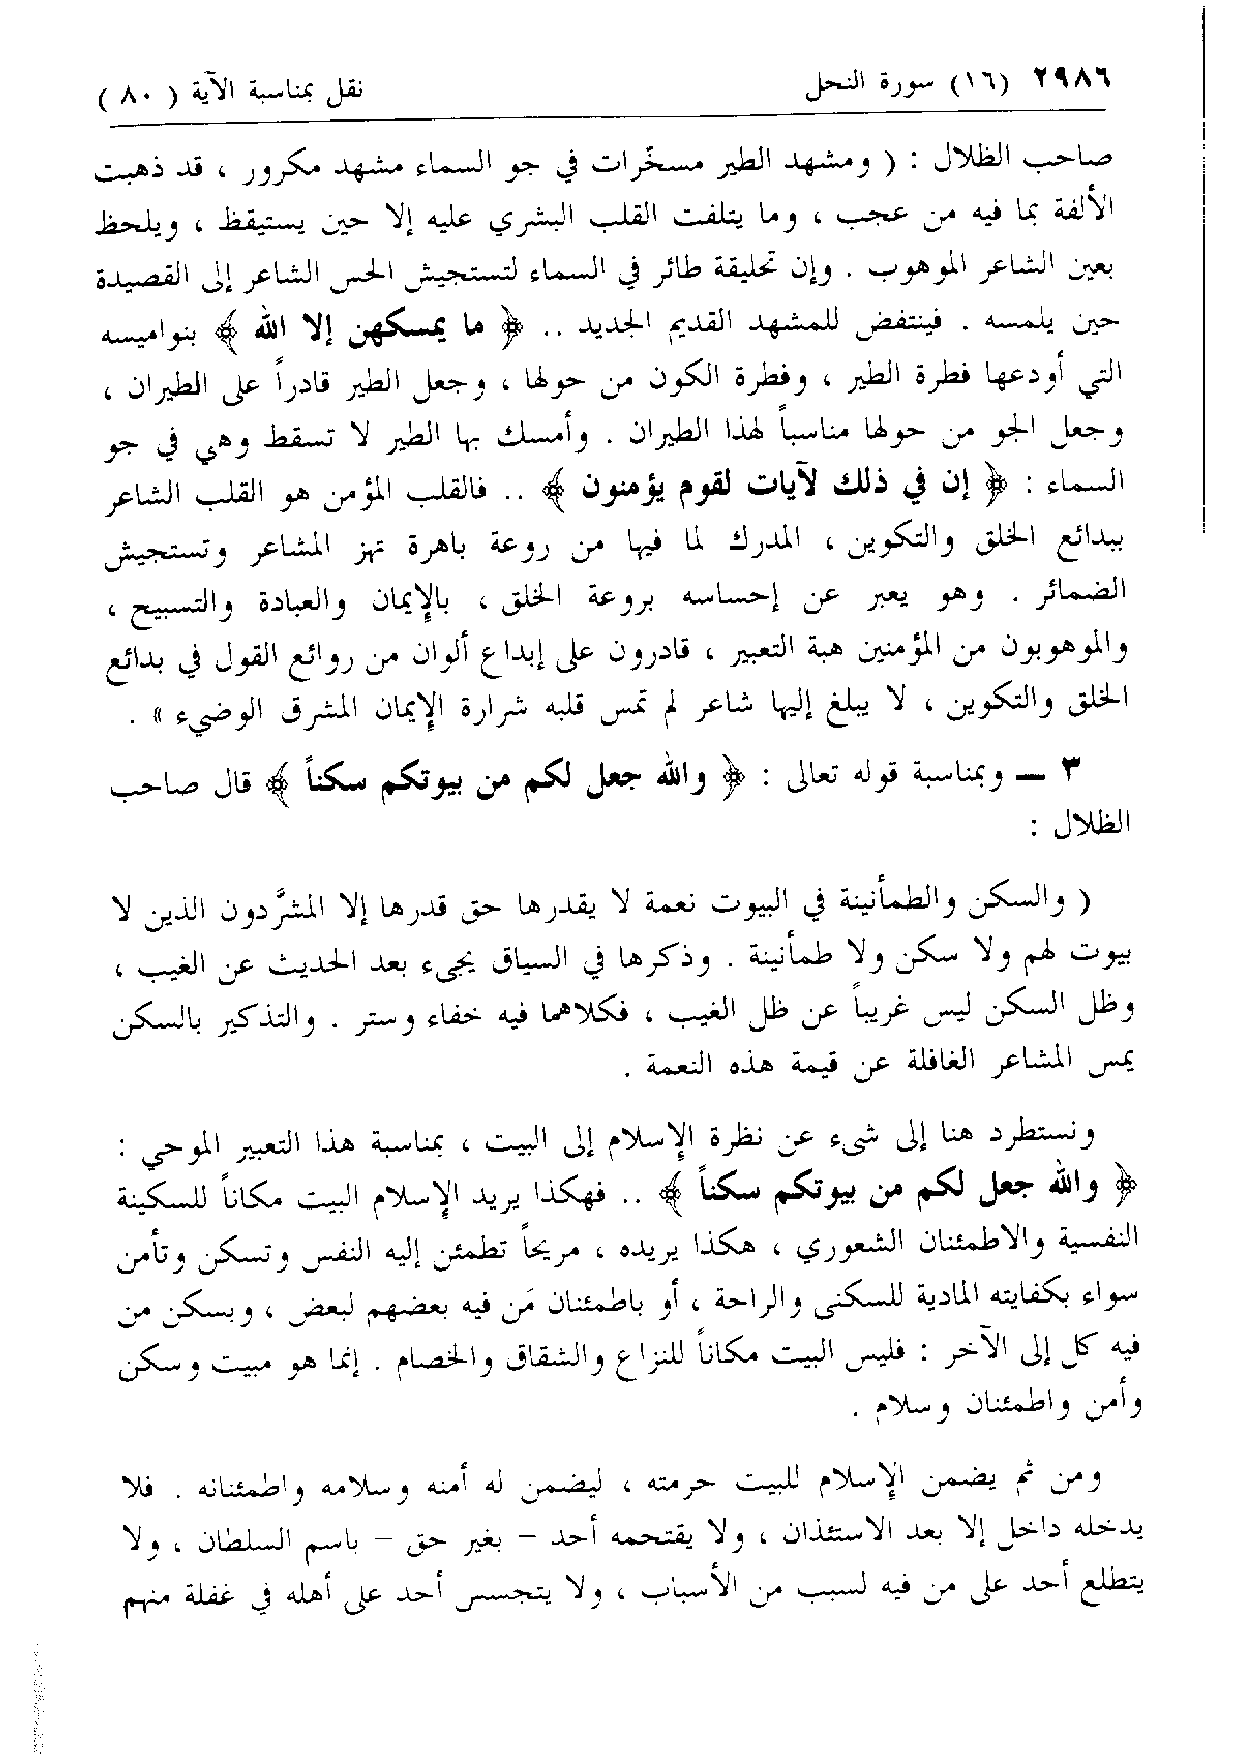 ٢٩٨٦ (١٦) سورة النحل نقل بمناسبة الآية ( ٨٠ )
صاحب الظلال : ( ومشهد الطير مسخّرات في جو السماء مشهد مكرور ، قد ذهبت
الألفة بما فيه من عجب ، وما يتلفت القلب البشري عليه إلا حين يستيقظ ، ويلحظ
بعين الشاعر الموهوب . وإن تحليقة طائر في السماء لتستجيش الحس الشاعر إلى القصيدة
حين يلمسه . فينتفض للمشهد القديم الجديد .. ﴿ ما يمسكهن إلا الله ﴾ بنواميسه
التي أودعها فطرة الطير ، وفطرة الكون من حولها ، وجعل الطير قادراً على الطيران ،
وجعل الجو من حولها مناسباً لهذا الطيران . وأمسك بها الطير لا تسقط وهي في جو
السماء : ﴿ إن في ذلك لآيات لقوم يؤمنون ﴾ .. فالقلب المؤمن هو القلب الشاعر
ببدائع الخلق والتكوين ، المدرك لما فيها من روعة باهرة تهز المشاعر وتستجيش
الضمائر . وهو يعبر عن إحساسه بروعة الخلق ، بالإيمان والعبادة والتسبيح ،
والموهوبون من المؤمنين هبة التعبير ، قادرون على إبداع ألوان من روائع القول في بدائع
الخلق والتكوين ، لا يبلغ إليها شاعر لم تمس قلبه شرارة الإيمان المشرق الوضيء » .
٣ — وبمناسبة قوله تعالى : ﴿ والله جعل لكم من بيوتكم سكناً ﴾ قال صاحب
الظلال :
( والسكن والطمأنينة في البيوت نعمة لا يقدرها حق قدرها إلا المشرَّدون الذين لا
بيوت لهم ولا سكن ولا طمأنينة . وذكرها في السياق يجيء بعد الحديث عن الغيب ،
وظل السكن ليس غريباً عن ظل الغيب ، فكلاهما فيه خفاء وستر . والتذكير بالسكن
يمس المشاعر الغافلة عن قيمة هذه النعمة .
ونستطرد هنا إلى شيء عن نظرة الإسلام إلى البيت ، بمناسبة هذا التعبير الموحي :
﴿ والله جعل لكم من بيوتكم سكناً ﴾ .. فهكذا يريد الإسلام البيت مكاناً للسكينة
النفسية والاطمئنان الشعوري ، هكذا يريده ، مريحاً تطمئن إليه النفس وتسكن وتأمن
سواء بكفايته المادية للسكنى والراحة ، أو باطمئنان مَن فيه بعضهم لبعض ، وبسكن من
فيه كل إلى الآخر : فليس البيت مكاناً للنزاع والشقاق والخصام . إنما هو مبيت وسكن
وأمن واطمئنان وسلام .
ومن ثم يضمن الإسلام للبيت حرمته ، ليضمن له أمنه وسلامه واطمئنانه . فلا
يدخله داخل إلا بعد الاستئذان ، ولا يقتحمه أحد – بغير حق – باسم السلطان ، ولا
يتطلع أحد على من فيه لسبب من الأسباب ، ولا يتجسس أحد على أهله في غفلة منهم